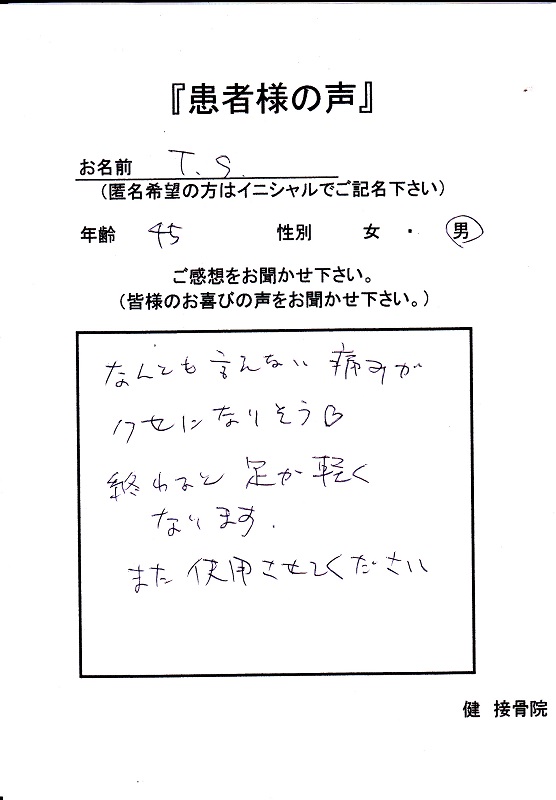 『患者様の声』
お名前 T.S.
（匿名希望の方はイニシャルでご記名下さい）
年齢 45 性別 女 ・ 男
ご感想をお聞かせ下さい。
（皆様のお喜びの声をお聞かせ下さい。）
なんとも言えない痛みが
クセになりそう♡
終わると足が軽く
なります.
また使用させてください
健 接骨院